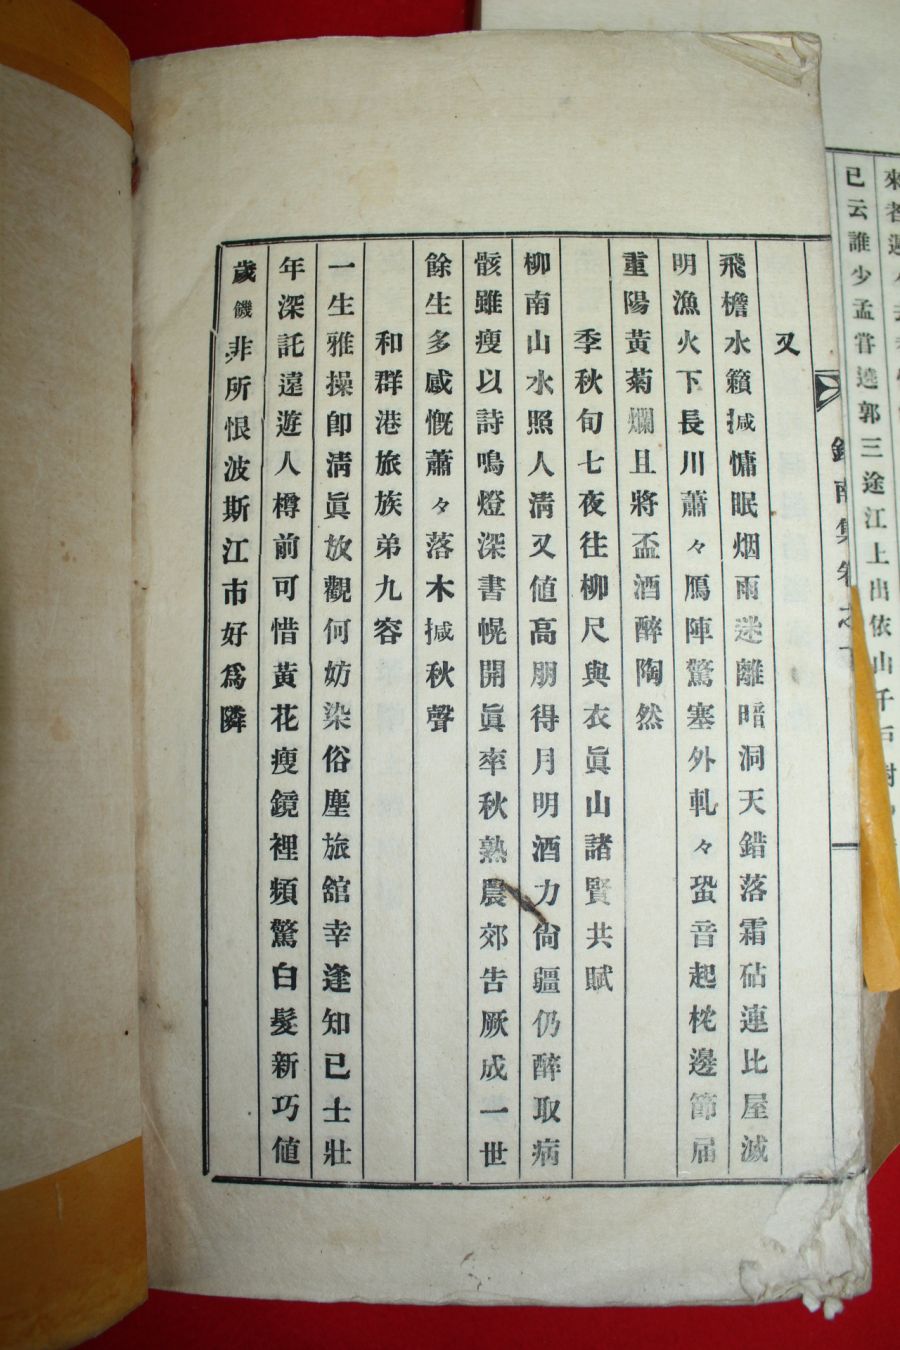 來若
已云誰少孟甞遶郭三途江上出依山千戶
南集卷之下
又
飛檐水籟撼慵眠烟雨迷離暗洞天錯落霜砧連比屋滅
明漁火下長川蕭々鴈陣驚塞外軋々蛩音起枕邊節届
重陽黃菊爛且將盃酒醉陶然
季秋旬七夜往柳尺與衣眞山諸賢共賦
柳南山水照人淸又値高朋得月明酒力尙疆仍醉取病
骸雖瘦以詩鳴燈深書幌開眞率秋熟農郊告厥成一世
餘生多感慨蕭々落木撼秋聲
和群港旅族弟九容
一生雅操卽淸眞放觀何妨染俗塵旅舘幸逢知已士壯
年深託遠遊人樽前可惜黃花瘦鏡裡頻驚白髮新巧値
歲饑非所恨波斯江市好爲隣